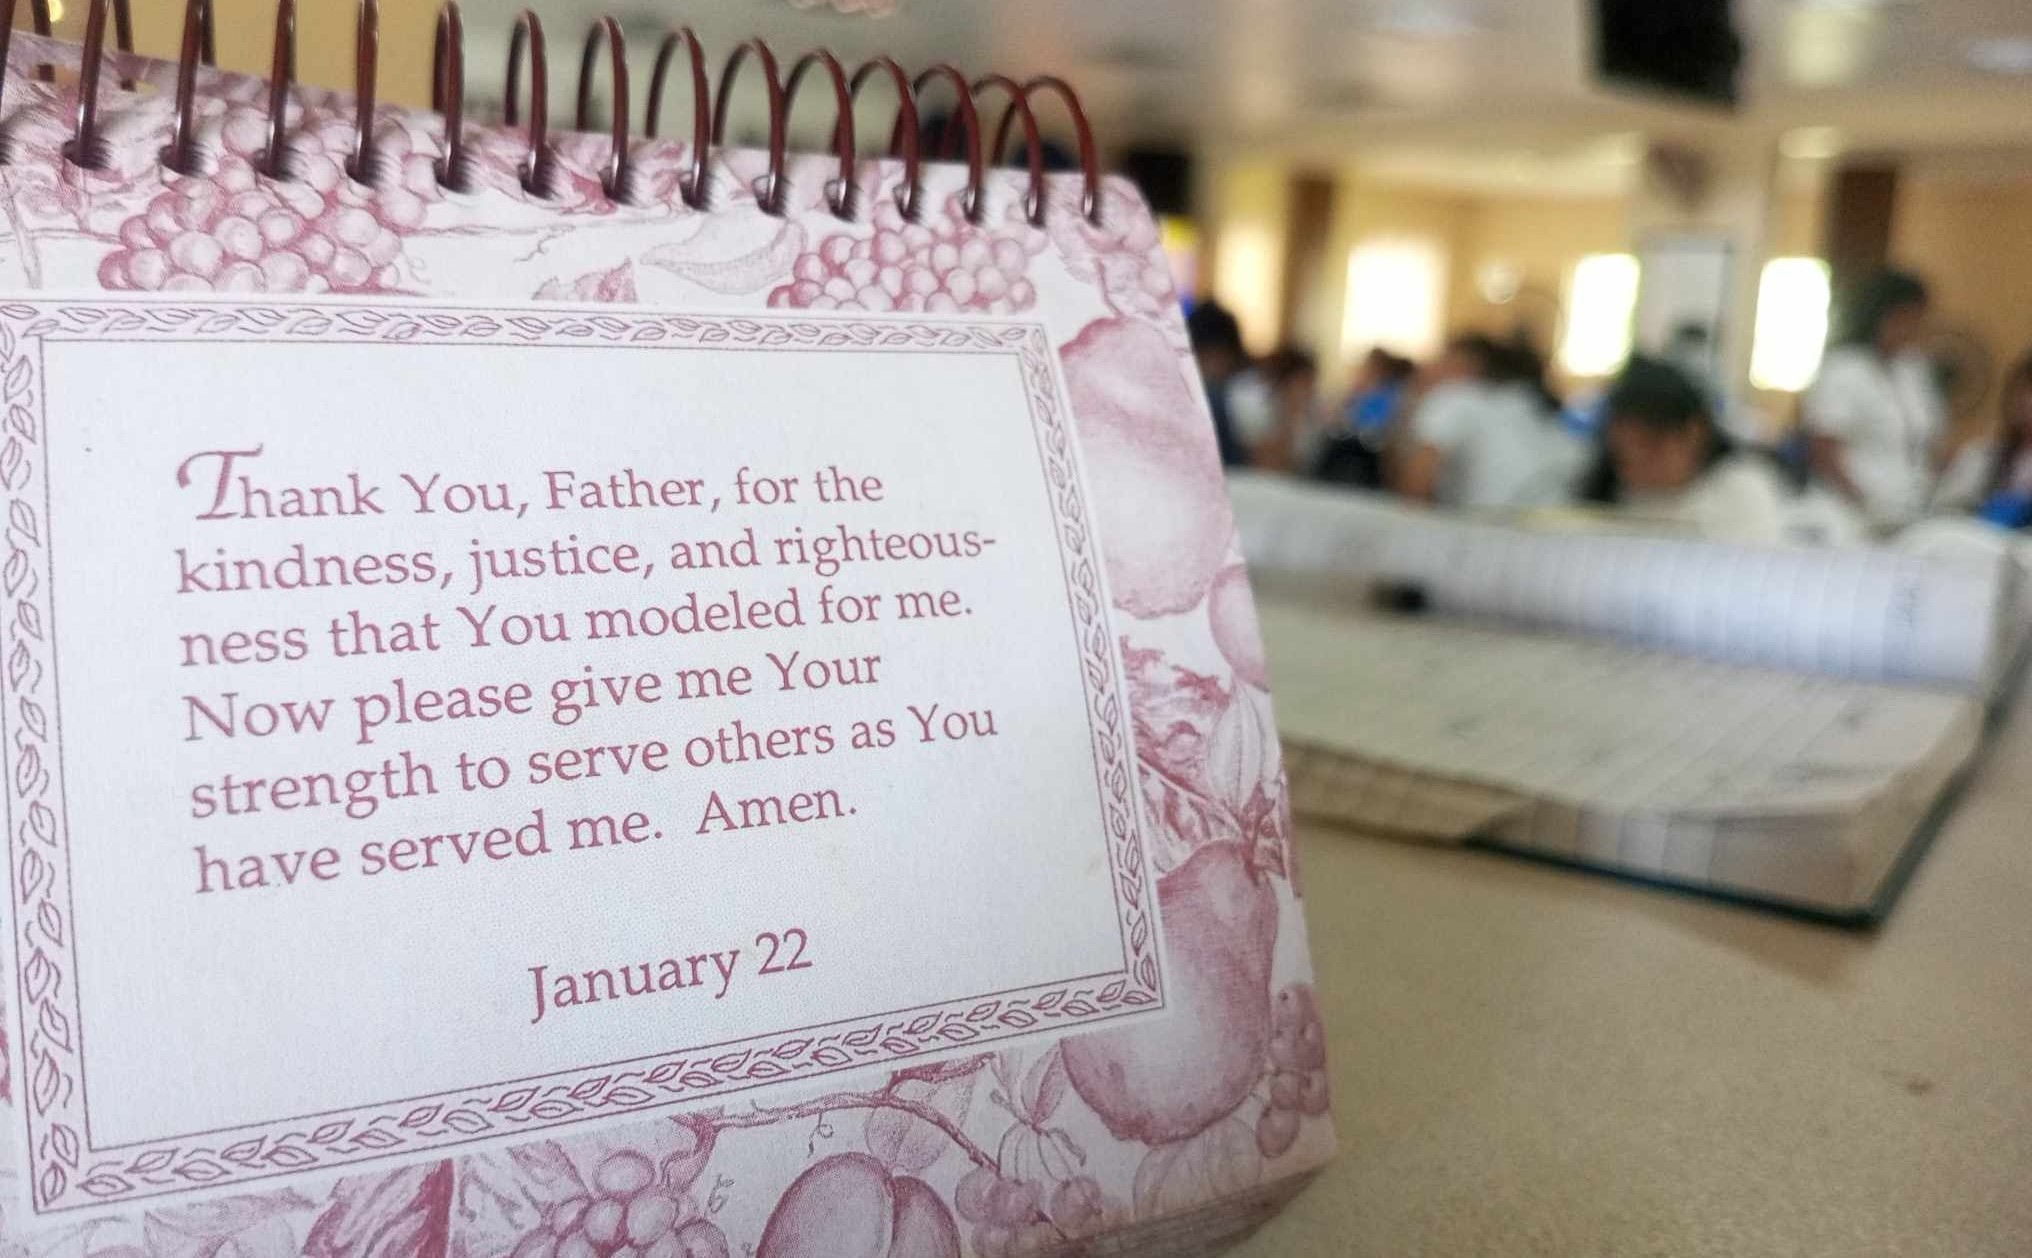 Thank You, Father, for the
kindness, justice, and righteous-
ness that You modeled for me.
Now please give me Your
strength to serve others as You
have served me. Amen.
January 22